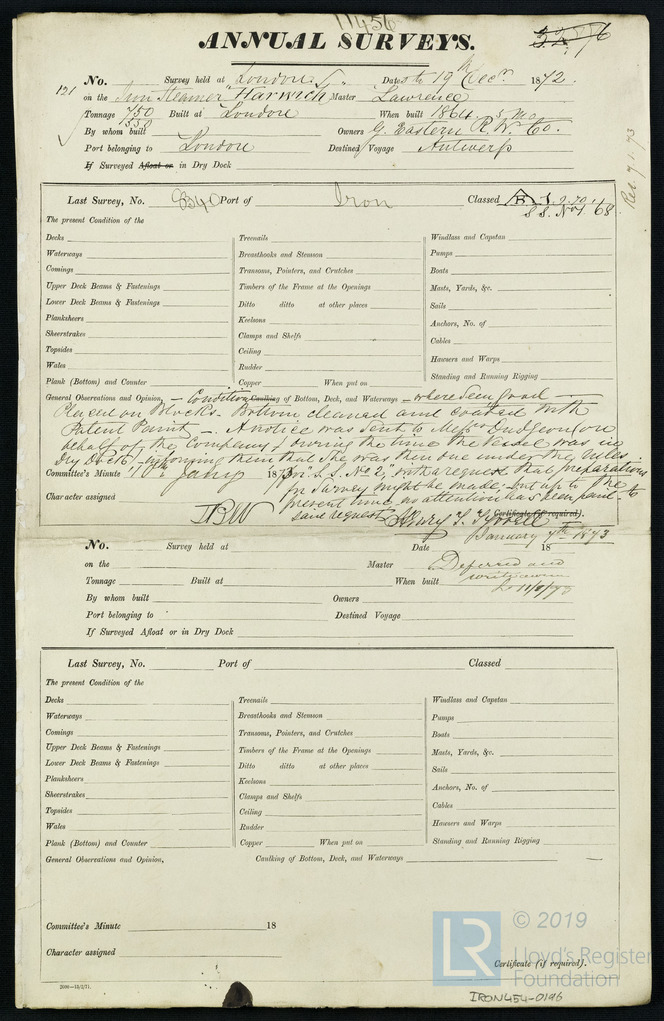 11456
ANNUAL SURVEYS.
No. Survey held at London Date 19th Decr 1872.
121 on the Iron Steamer "Harwich" Master Lawrence
Tonnage 750 Built at London When built 1864 5 mo
1350
By whom built Owners G. Eastern R.W. Co.
Port belonging to London Destined Voyage Antwerp
If Surveyed Afloat or in Dry Dock
Rec. 7.1.73
Last Survey, No. 8340 Port of Iron Classed A 1. 9.70
S.S. No 1 '68
The present Condition of the
Decks
Waterways
Comings
Upper Deck Beams & Fastenings
Lower Deck Beams & Fastenings
Planksheers
Sheerstrakes
Topsides
Wales
Plank (Bottom) and Counter
Treenails
Breasthooks and Stemson
Transoms, Pointers, and Crutches
Timbers of the Frame at the Openings
Ditto ditto at other places
Keelsons
Clamps and Shelfs
Ceiling
Rudder
Copper When put on
Windlass and Capstan
Pumps
Boats
Masts, Yards, &c.
Sails
Anchors, No. of
Cables
Hawsers and Warps
Standing and Running Rigging
General Observations and Opinion, – Condition Caulking of Bottom, Deck, and Waterways – where seen good –
Placed on Blocks. Bottom cleaned and coated with
Patent Paint –. A notice was sent to Messrs Dudgeon (on
behalf of the Company) during the time the Vessel was in
Dry Dock, informing them that she was then due under the rules
Committee's Minute 10th Jany 1873 for "S.S. No 2," with a request that preparations
for Survey might be made, but up to the
Character assigned present time no attention has been paid to
said request
Certificate (if required).
January 7th 1873
No. Survey held at Date 18
on the Master Deferred and
Tonnage Built at When built write owner
By whom built Owners
Port belonging to Destined Voyage
If Surveyed Afloat or in Dry Dock
Last Survey, No. Port of Classed
The present Condition of the
Decks
Waterways
Comings
Upper Deck Beams & Fastenings
Lower Deck Beams & Fastenings
Planksheers
Sheerstrakes
Topsides
Wales
Plank (Bottom) and Counter
Treenails
Breasthooks and Stemson
Transoms, Pointers, and Crutches
Timbers of the Frame at the Openings
Ditto ditto at other places
Keelsons
Clamps and Shelfs
Ceiling
Rudder
Copper When put on
Windlass and Capstan
Pumps
Boats
Masts, Yards, &c.
Sails
Anchors, No. of
Cables
Hawsers and Warps
Standing and Running Rigging
General Observations and Opinion, Caulking of Bottom, Deck, and Waterways
Committee's Minute 18
Character assigned
Certificate (if required).
LR © 2019
Lloyd's Register
Foundation
IRON454-0196